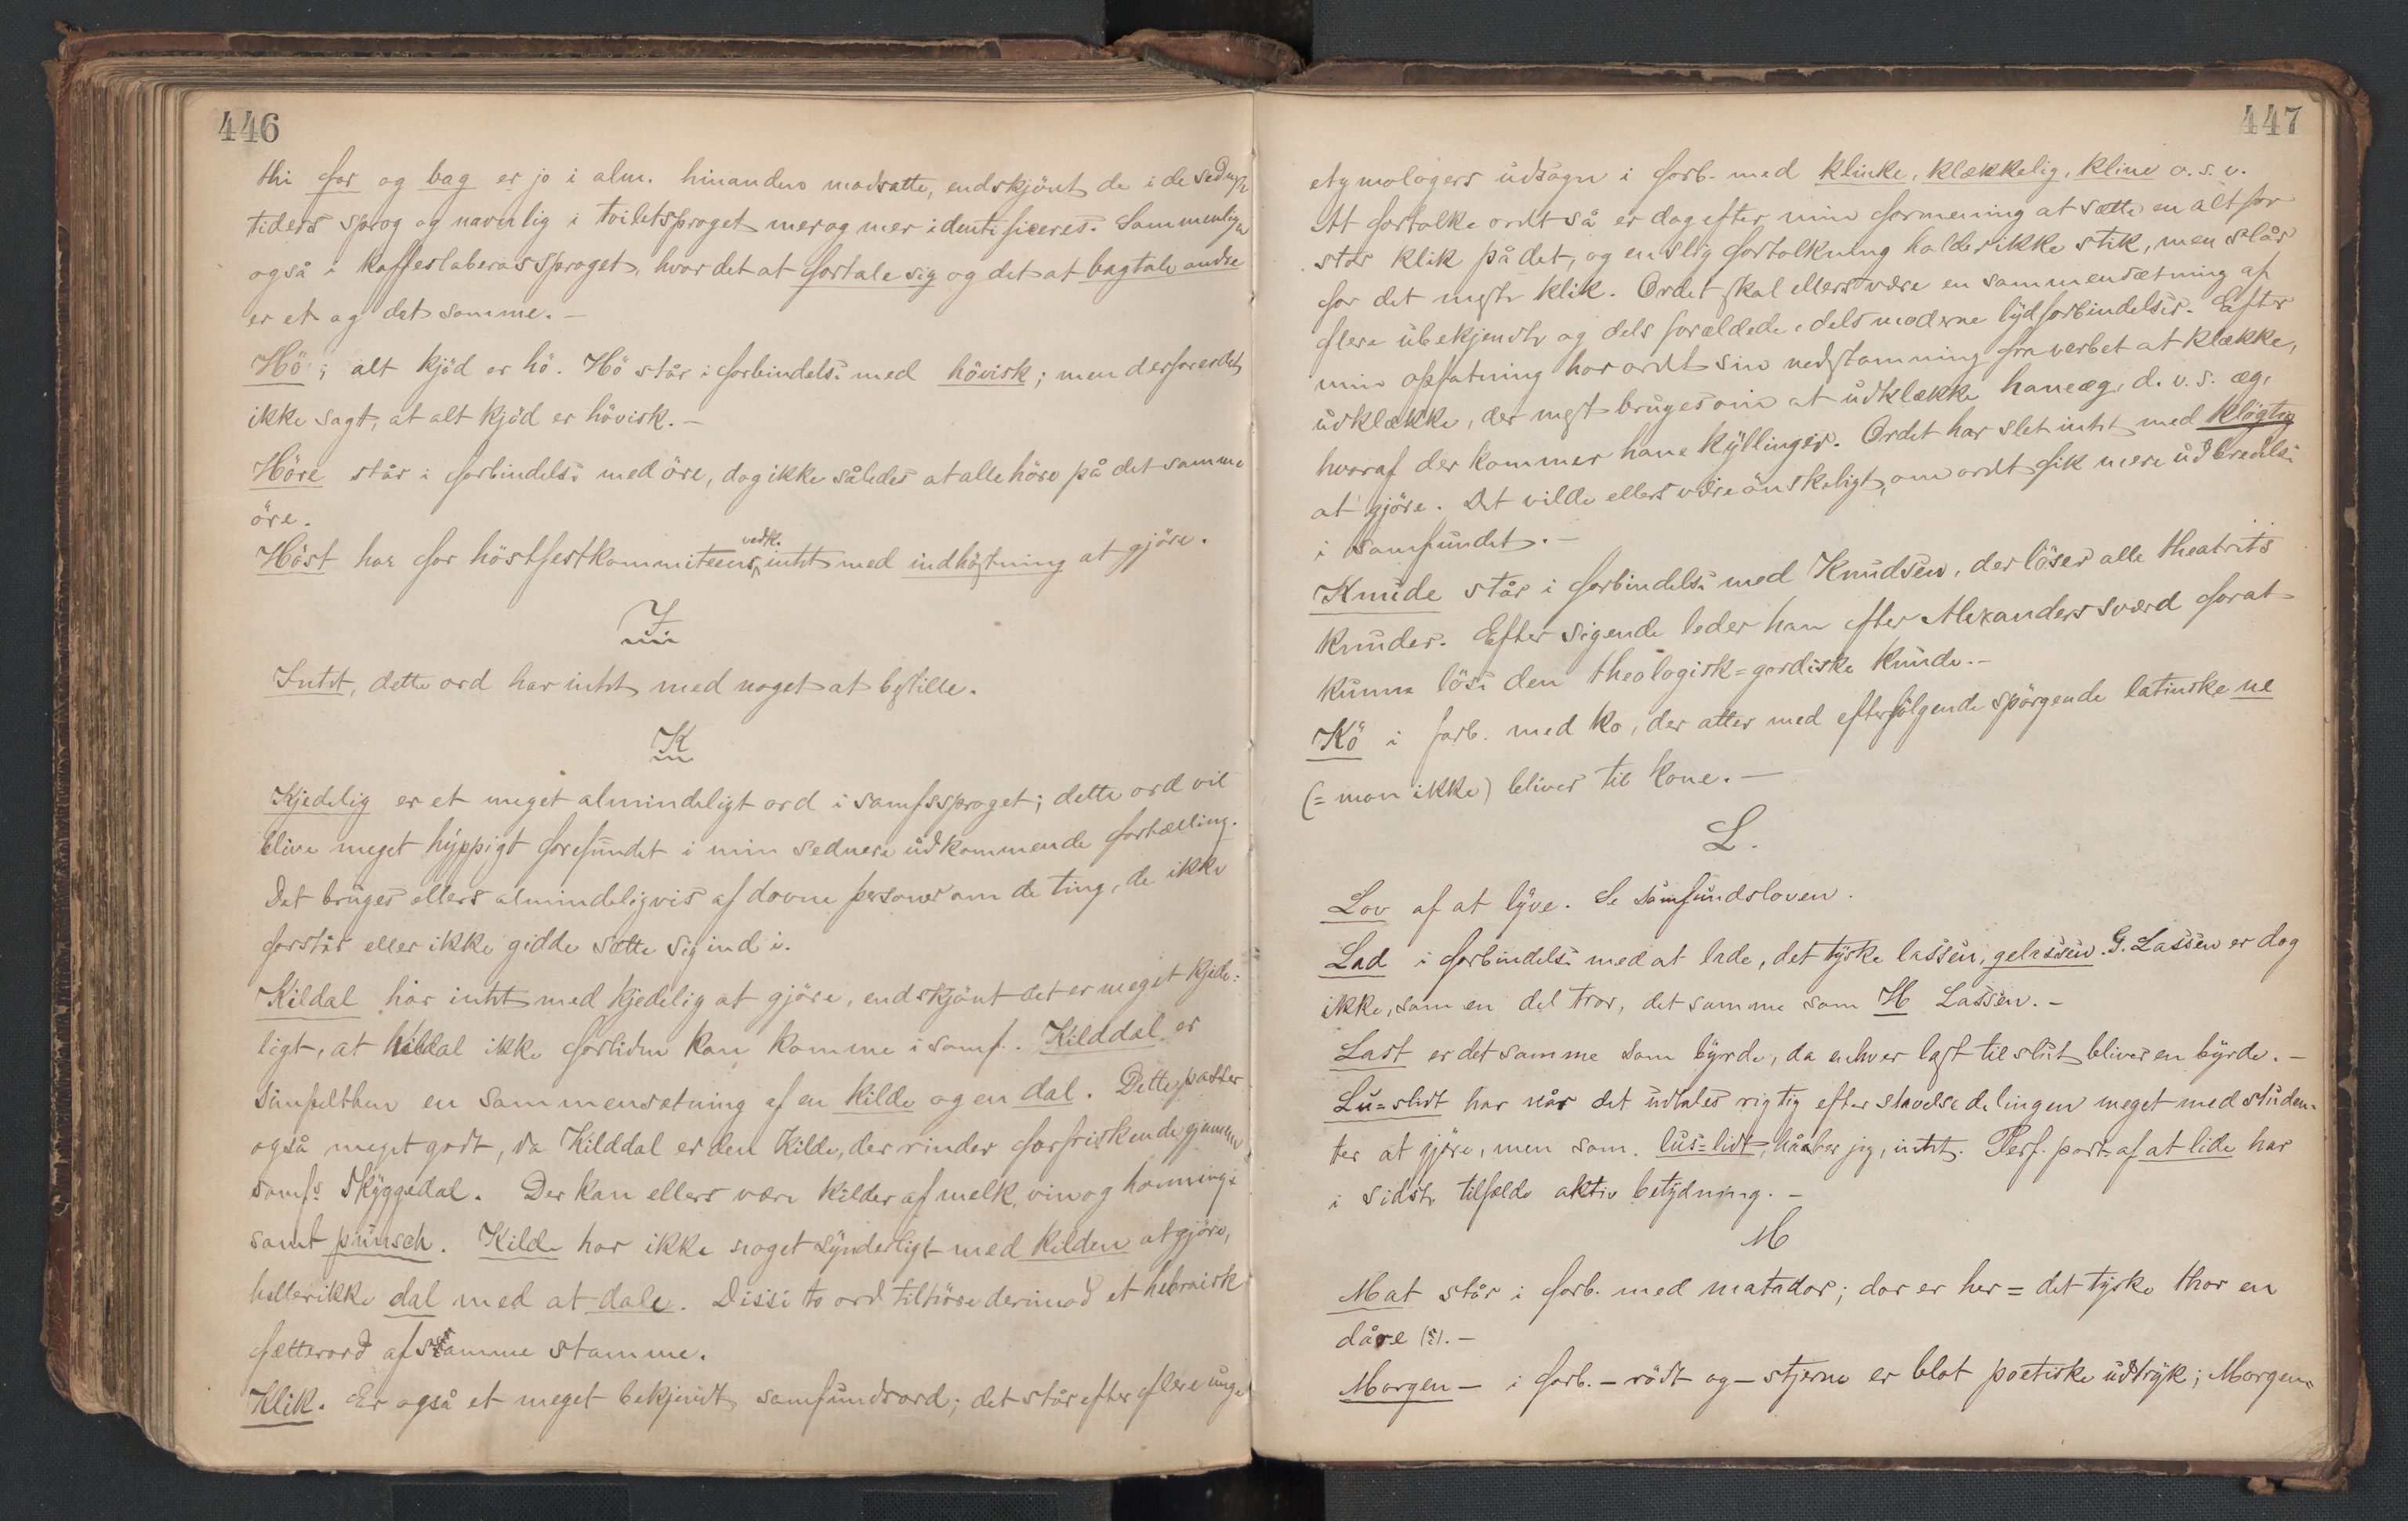 446
thi for og bag er jo i alm. hinandens modsatte, endskjönt de i de sednste
tiders sprog og navnlig i toiletsproget mer og mer identificeres. Sammenlign
også i kaffeslaberassproget, hvor det at fortale sig og det at bagtale andre
er et og det samme. —
Hö; alt kjöd er hö. Hö står i forbindelse med hövisk; men derfor er det
ikke sagt, at alt kjöd er hövisk. —
Höre står i forbindelse med öre, dog ikke således at alle höre på det samme
öre.
Höst har for höstfestkommiteens vedk. intet med indhöstning at gjöre.
I
Intet, dette ord har intet med noget at bestille.
K
Kjedelig er et meget almindeligt ord i samfssproget; dette ord vil
blive meget hyppigt forefundet i min sednere udkommende fortælling.
Det bruges ellers almindeligvis af dovne personer om de ting, de ikke
forstår eller ikke gidde sætte sig ind i.
Kildal har intet med kjedelig at gjöre, endskjönt det er meget kjede-
ligt, at kildal ikke forliden kan komme i samf. Kilddal er
simpelthen en sammensætning af en kilde og en dal. Dette passer
også meget godt, da Kilddal er den kilde, der rinder forfriskende gjennem
samfs skyggedal. Der kan ellers være kilder af melk, vin og honning-
samt punsch. Kilde har ikke noget synderligt med kilden at gjöre,
heller ikke dal med at dale. Disse to ord tilhöre derimod et hebraisk
fætterord af samme stamme.
Klik. Er også et meget bekjendt samfundsord; det står efter flere unge
447
etymologers udsagn i forb. med klinke, klækkelig, kline o. s. v.
At fortolke ordet så er dog efter min formening at sætte en alt for
stor klik på det, og en slig fortolkning holder ikke stik, men slår
for det meste klik. Ordet skal ellers være en sammensætning af
flere ubekjendte og dels forældede, dels moderne lydforbindelser. Efter
min opfatning har ordet sin nedstamning fra verbet at klække,
udklække, der mest bruges om at udklække haneæg, d. v. s. æg,
hvoraf der kommer hane kyllinger. Ordet har slet intet med klögtig
at gjöre. Det vilde ellers være önskeligt, om ordet fik mere udbredelse
i samfundet. —
Knude står i forbindelse med Knudsen, der löser alle theatrets
knuder. Efter sigende leder han efter Alexanders sværd for at
kunne löse den theologisk=gordiske knude. —
Kö i forb. med ko, der atter med efterfölgende spörgende latinske ne
(= mon ikke) bliver til kone. —
L.
Lov af at lyve. Se samfundsloven.
Lad i forbindelse med at lade, det tyske lassen, gelassen. G. Lassen er dog
ikke, som en del tror, det samme som H Lassen. —
Last er det samme som byrde, da enhver last til slut bliver en byrde. —
Lu=slidt har når det udtales rigtig efter stavelsedelingen meget med studen-
ter at gjöre, men som lus=lidt, håber jeg, intet. Perf. part. af at lide har
i sidste tilfælde aktiv betydning. —
M
Mat står i forb. med matador; dor er her = det tyske thor en
dåre (?). —
Morgen — i forb. — rödt og — stjerne er blot poetiske udtryk; Morgen=